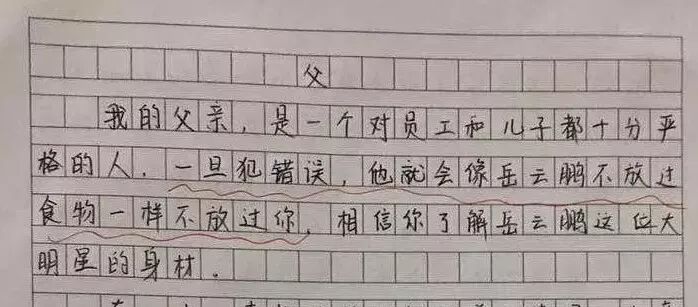 父
我的父亲，是一个对员工和儿子都十分严
格的人．一旦犯错误，他就会像岳云鹏不放过
食物一样不放过你，相信你了解岳云鹏这位大
明星的身材．